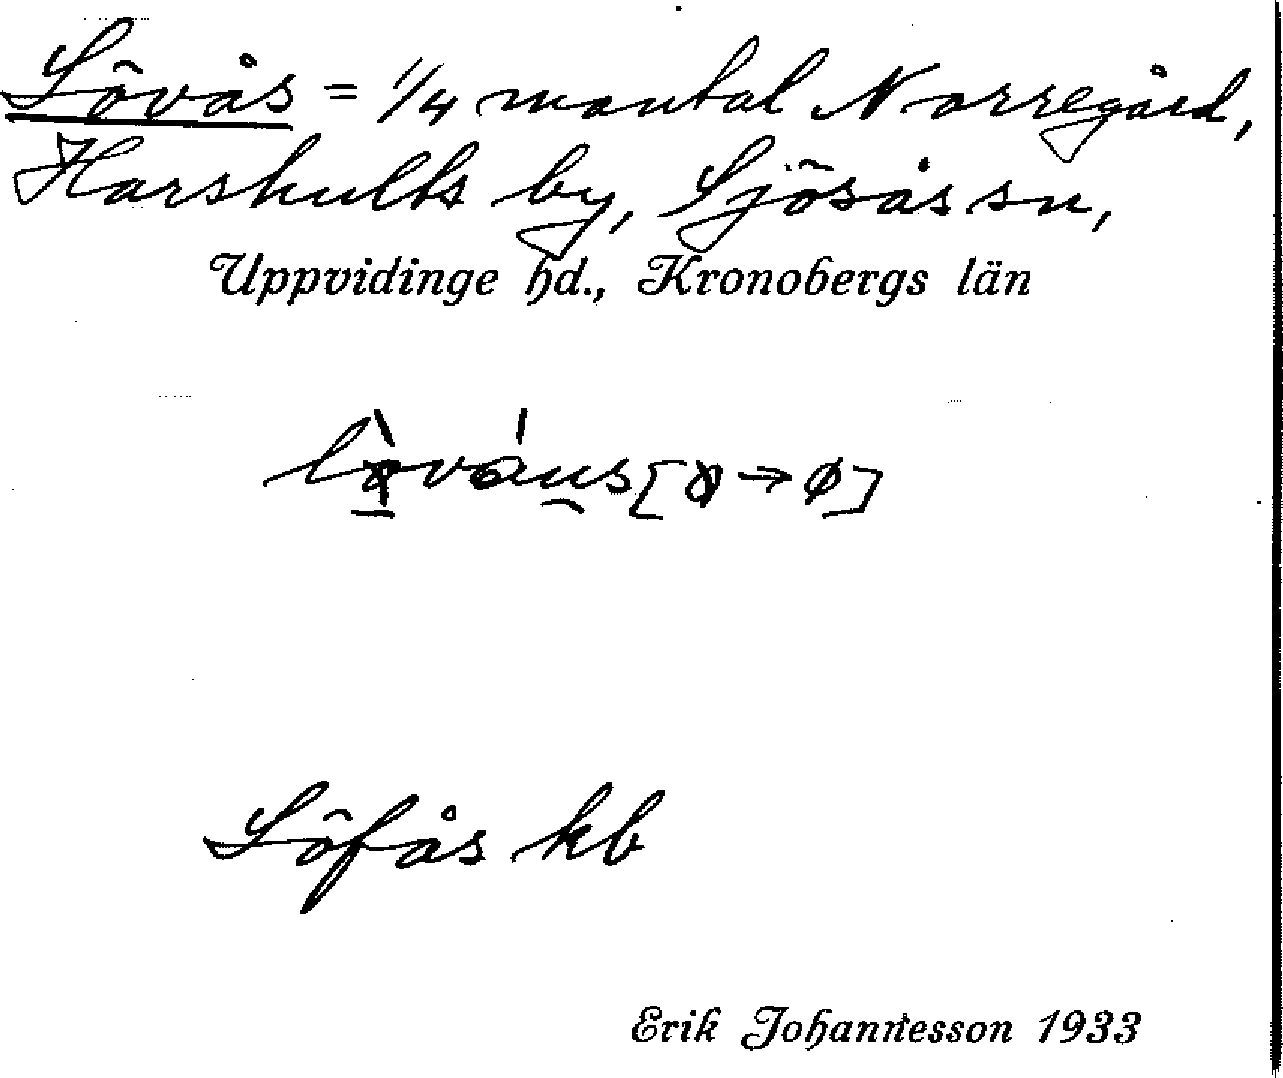 Lövås = 1/4 mantal Norregård,
Harshults by, Sjösås sn,
Uppvidinge hd., Kronobergs län
Löfås kb
Erik Johannesson 1933